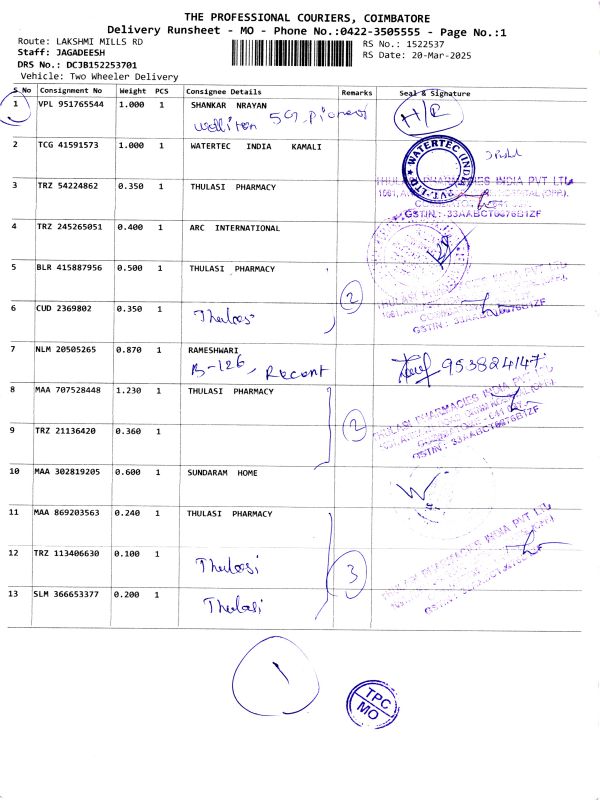 THE PROFESSIONAL COURIERS, COIMBATORE
Delivery Runsheet - MO - Phone No.:0422-3505555 - Page No.:1
Route: LAKSHMI MILLS RD
RS No.: 1522537
Staff: JAGADEESH
RS Date: 20-Mar-2025
DRS No.: DCJB152253701
Vehicle: Two Wheeler Delivery
S No Consignment No Weight PCS Consignee Details Remarks Seal & Signature
1 VPL 951765544 1.000 1 SHANKAR NRAYAN
H/R
2 TCG 41591573 1.000 1 WATERTEC INDIA KAMALI
WATERTEC (INDIA) PVT. LTD.
3 TRZ 54224862 0.350 1 THULASI PHARMACY
THULASI PHARMACIES INDIA PVT LTD
GSTIN : 33AABCT0676B1ZF
4 TRZ 245265051 0.400 1 ARC INTERNATIONAL
5 BLR 415887956 0.500 1 THULASI PHARMACY
2
THULASI PHARMACIES INDIA PVT LTD
GSTIN : 33AABCT0676B1ZF
6 CUD 2369802 0.350 1 Thuloosi
7 NLM 20505265 0.870 1 RAMESHWARI
B-126, Recent
953824147
8 MAA 707528448 1.230 1 THULASI PHARMACY
2
THULASI PHARMACIES INDIA PVT LTD
GSTIN : 33AABCT0676B1ZF
9 TRZ 21136420 0.360 1
10 MAA 302819205 0.600 1 SUNDARAM HOME
11 MAA 869203563 0.240 1 THULASI PHARMACY
INDIA PVT LTD
12 TRZ 113406630 0.100 1 Thuloosi
3
13 SLM 366653377 0.200 1 Thulasi
1
TPC
MO